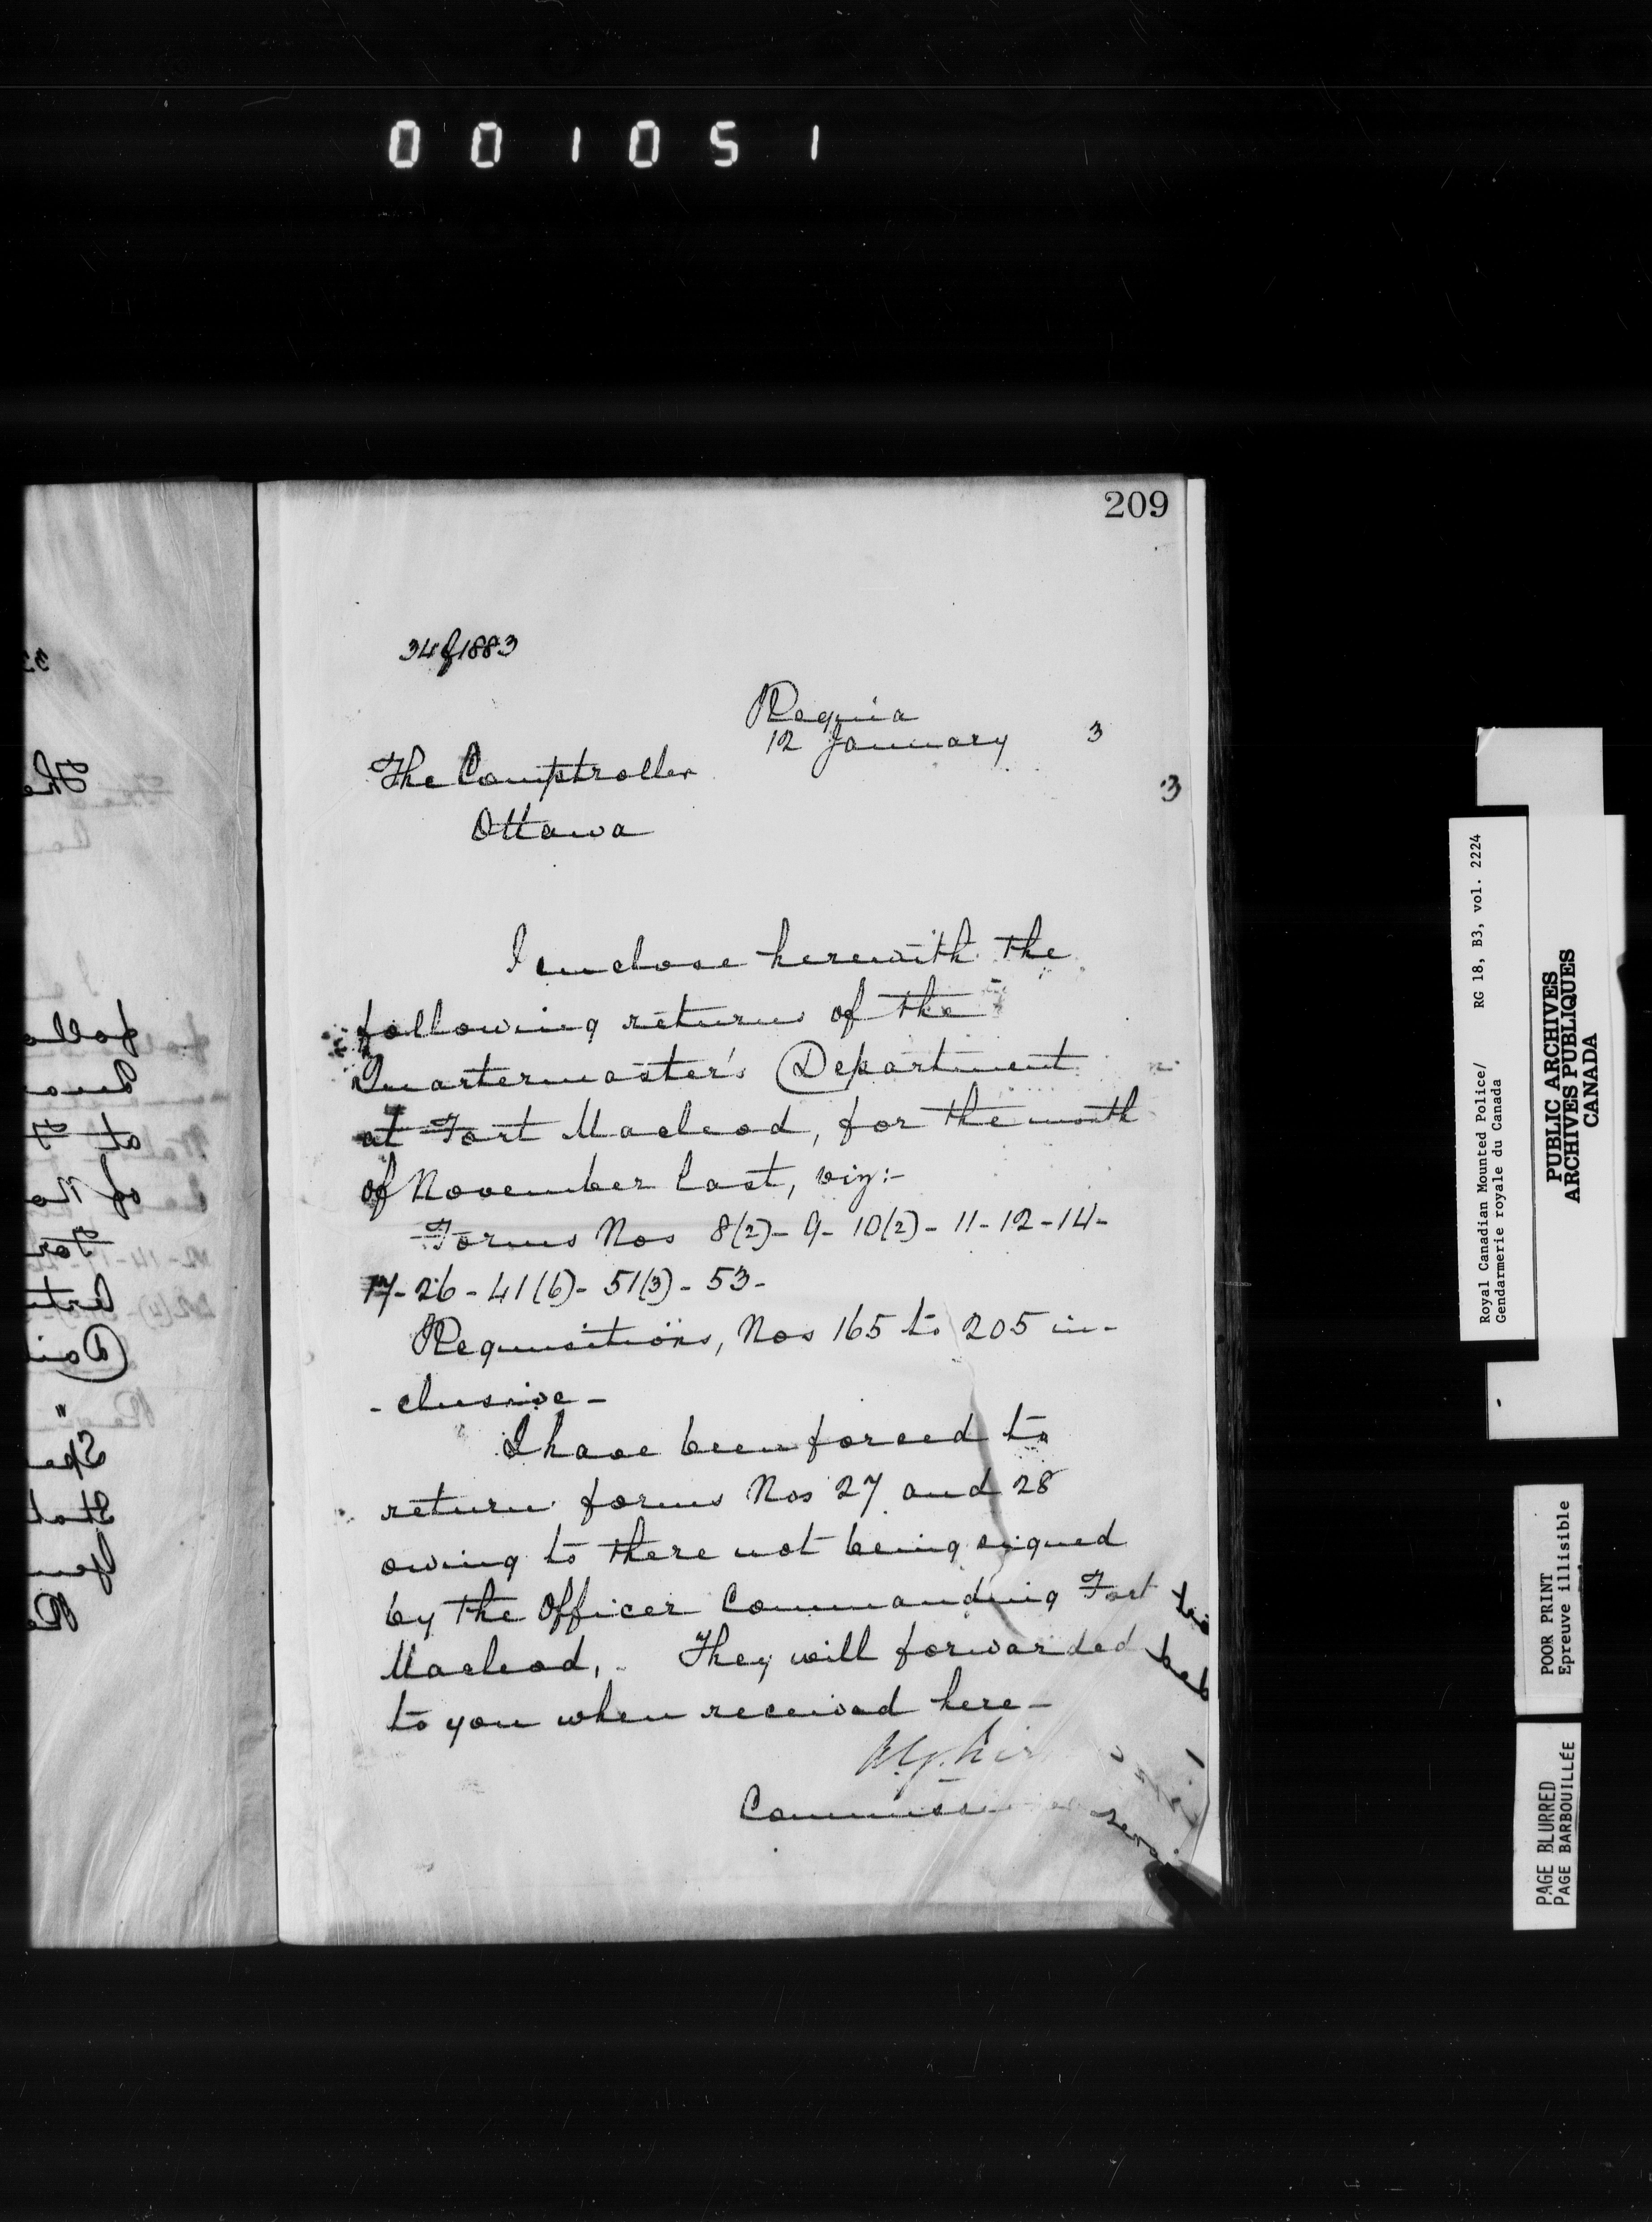 001051
209
34 of 1883
Regina
12 January 3
The Comptroller
3
Ottawa
I enclose herewith the
following returns of the
Quartermaster's Department
at Fort Macleod, for the month
of November last, viz:-
Forms Nos 8(2)- 9- 10(2)- 11- 12- 14-
17- 26- 41(6)- 51(3)- 53-
Requisitions, Nos 165 to 205 in-
- clusive -
I have been forced to
return forms Nos 27 and 28
owing to there not being signed
by the Officer Commanding Fort
Macleod, . They will forwarded
to you when received here -
Royal Canadian Mounted Police/ RG 18, B3, vol. 2224
Gendarmerie royale du Canada
PUBLIC ARCHIVES
ARCHIVES PUBLIQUES
CANADA
POOR PRINT
Epreuve illisible
PAGE BLURRED
PAGE BARBOUILLÉE